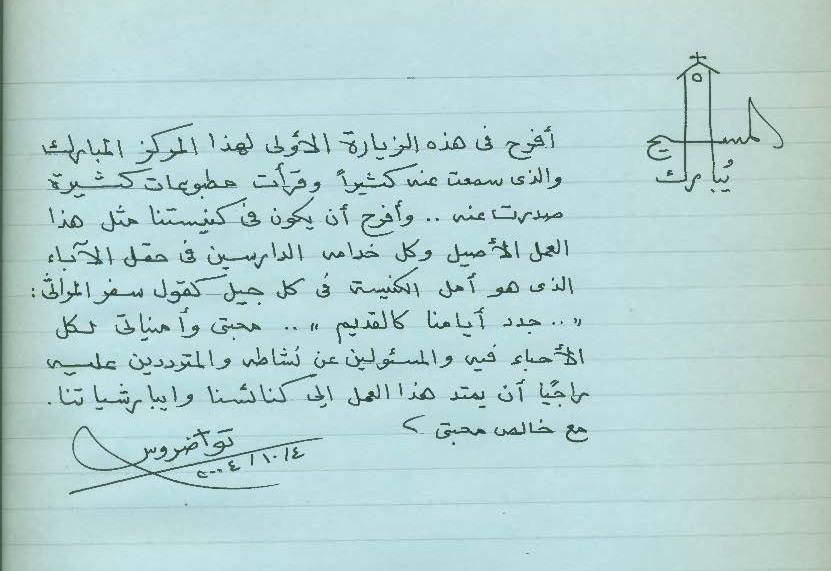 المسيح
يُبارك
أفرح فى هذه الزيارة الأولى لهذا المركز المبارك
والذى سمعت عنه كثيراً وقرأت مطبوعات كثيرة
صدرت عنه .. وأفرح أن يكون فى كنيستنا مثل هذا
العمل الأصيل وكل خدامه الدارسين فى حقل الآباء
الذى هو أمل الكنيسة فى كل جيل كقول سفر المراثى :
" .. جدد أيامنا كالقديم " .. محبتى وأمنياتى لكل
الأحباء فيه والمسئولين عن نشاطه والمترددين عليه
راجيًا أن يمتد هذا العمل إلى كنائسنا وايبارشياتنا .
مع خالص محبتى
تواضروس
٢٠٠٤/١٠/٤